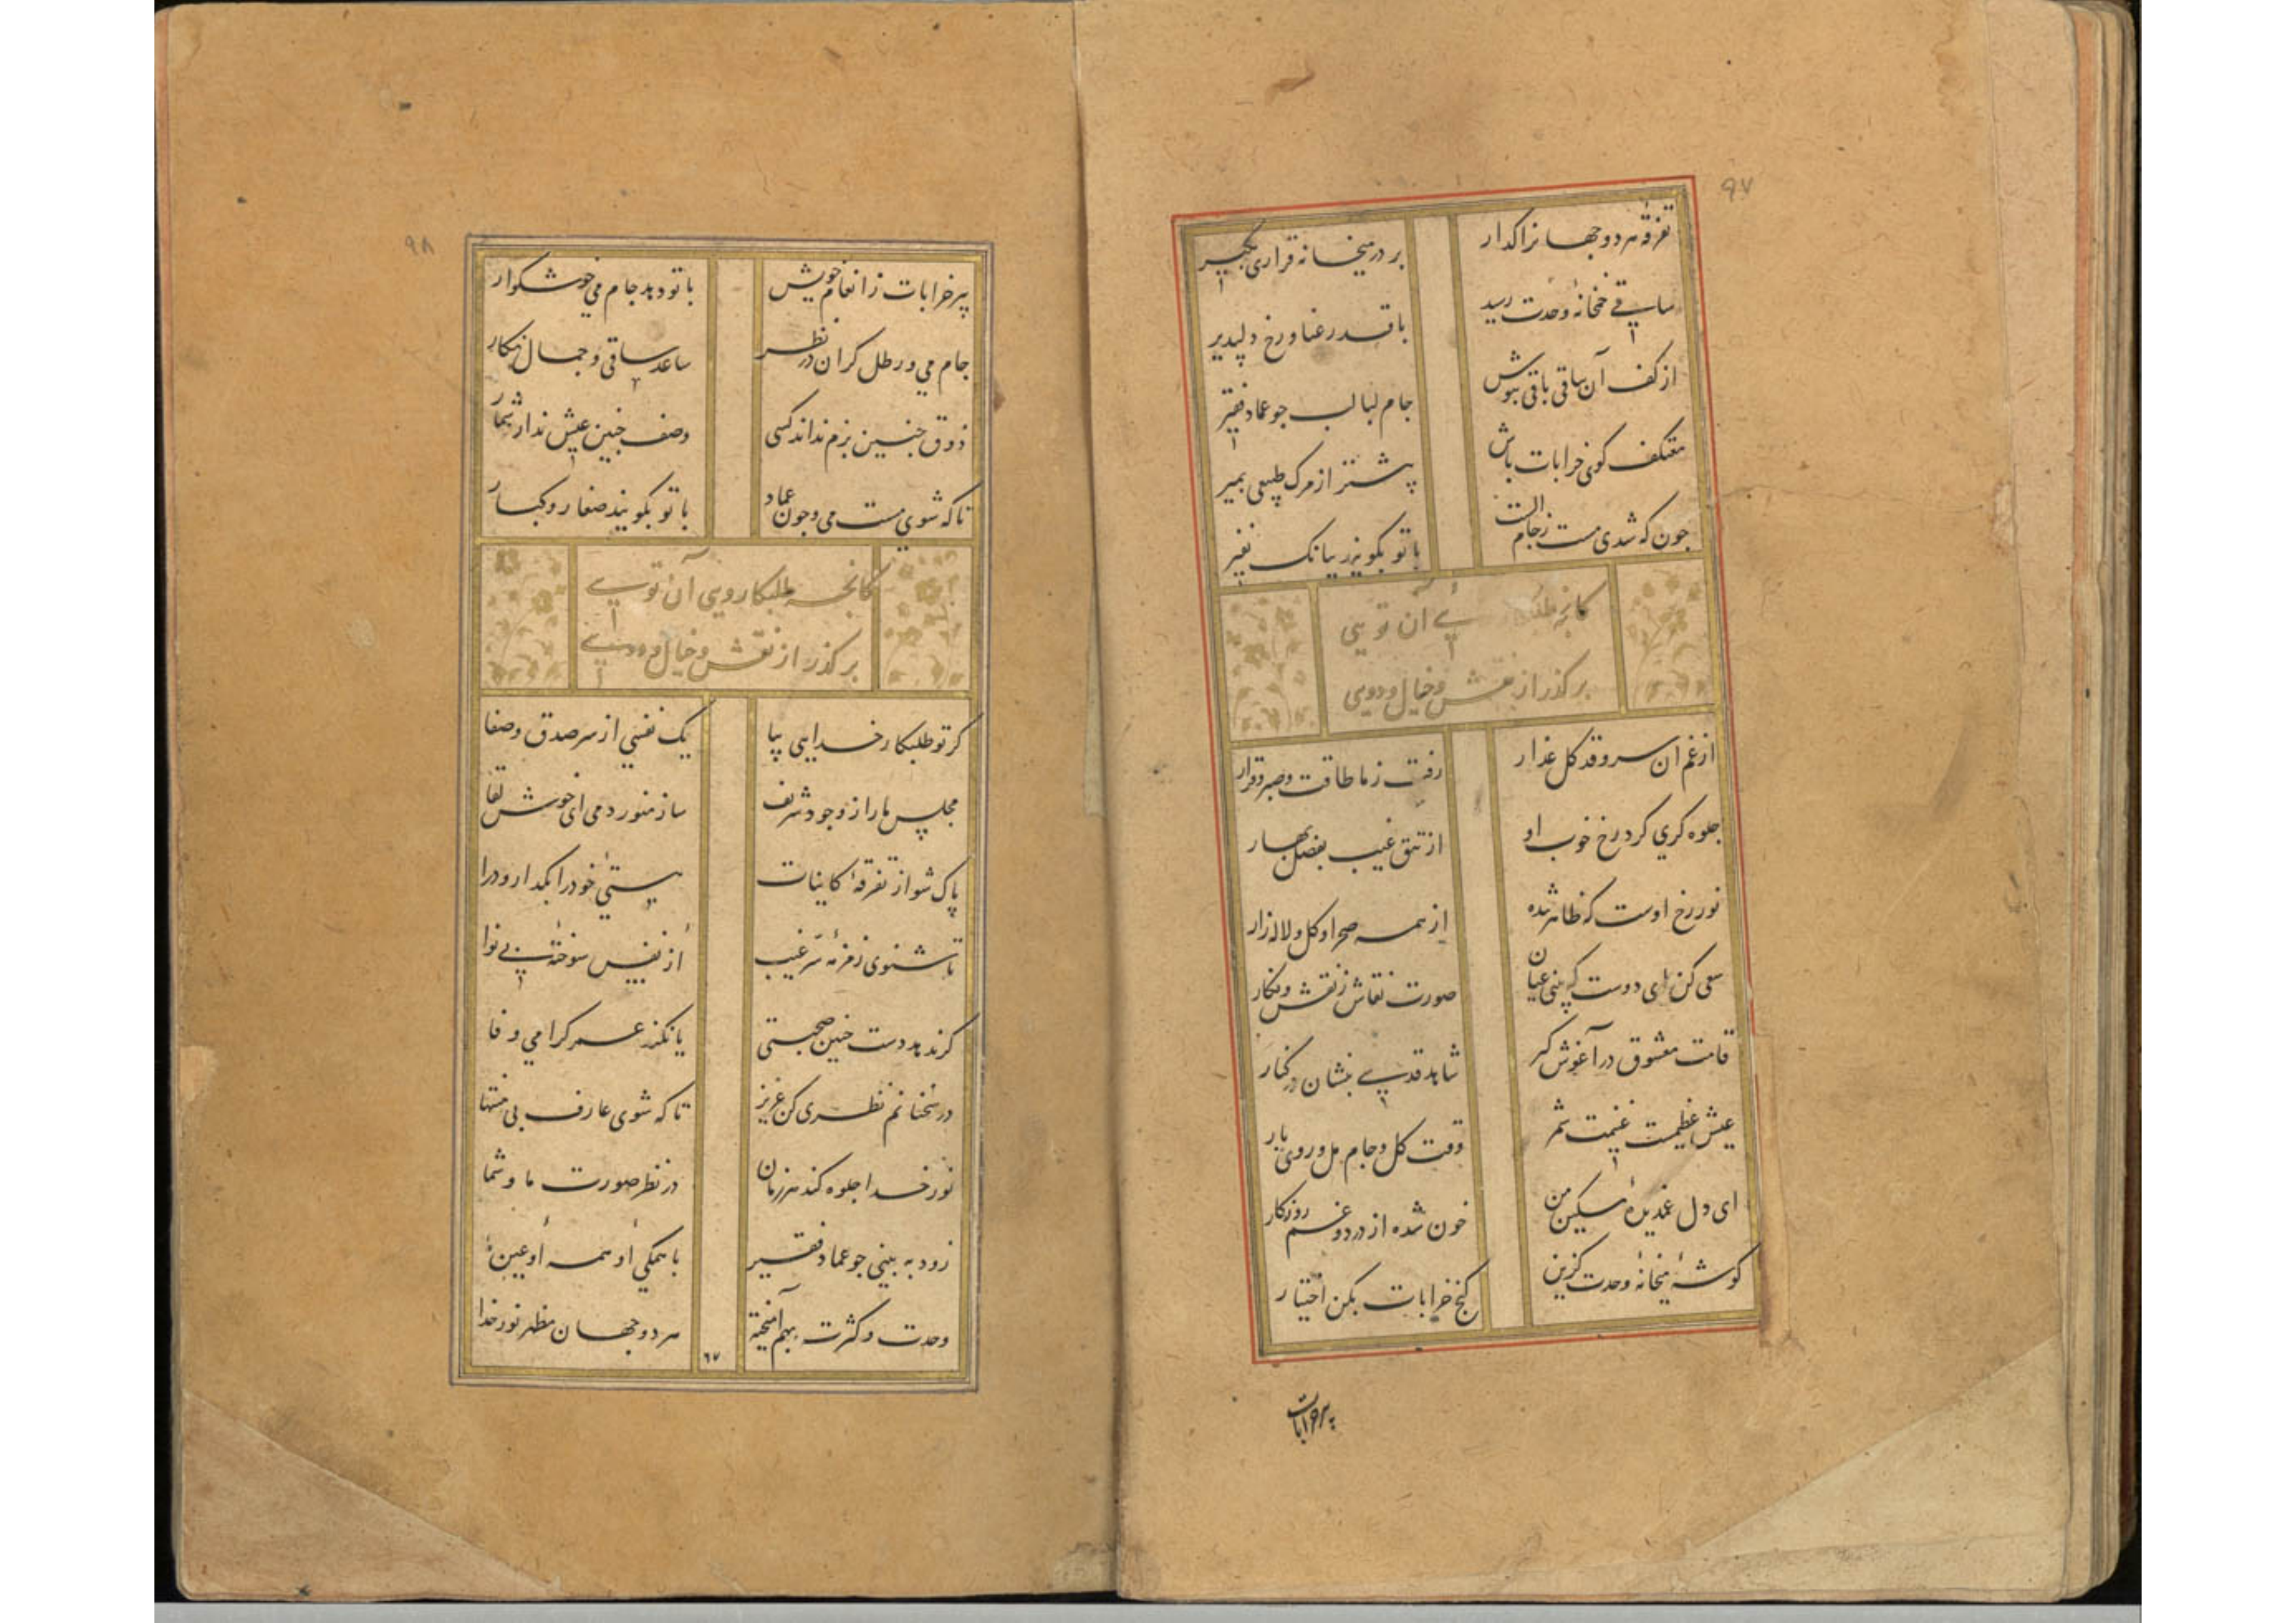 ۹۷
تفرقه هر دو جهانرا گذار
بر در میخانه قراری بگیر
ساقی خمخانهٔ وحدت رسید
با قد رعنا و رخ دلپذیر
از کف آن ساقی باقی بنوش
جام لبالب جو عماد فقیر
معتکف کوی خرابات باش
پیشتر از مرک طبیعی بمیر
جون که شدی مست ز جام الست
با تو بگویند ببانک نفیر
کانچه آن تویی
برگذر از نقش و خیال و دویی
از غم ان سرو قد کل عذار
رفت ز ما طاقت و صبر و قرار
جلوه کری کرد رخ خوب او
از تتق غیب بفصل بهار
نور رخ اوست که ظاهر شده
از همه صحرا و کل و لاله زار
سعی کن ای دوست که بینی عیان
صورت نقاش ز نقش و نکار
قامت معشوق در آغوش کیر
شاهد قدسی بنشان در کنار
عیش عظیمست غنیمت شمر
وقت کل و جام مل و روی یار
ای دل غمدیدهٔ مسکین من
خون شده از درد و غم روزکار
کوشهٔ میخانهٔ وحدت کزین
کنج خرابات بکن اختیار
پیر خرابات
۹۸
پیر خرابات ز انعام خویش
با تو دهد جام می خوشکوار
جام می و رطل کران در نظر
ساعد ساقی و جمال نکار
ذوق جنین بزم نداند کسی
وصف جنین عیش ندارد شمار
تا که شوی مست می و جون عماد
با تو بکویند صغار و کبار
کانچه طلبکار ویی آن تویی
برکذر از نقش و خیال و دویی
کر تو طلبکار خدایی بیا
یک نفسی از سر صدق و صفا
مجلس ما را ز وجود شریف
ساز منور دمی ای خوش لقا
پاک شو از تفرقهٔ کاینات
هستی خود را بکذار و درا
تا شنوی زمزمهٔ سر غیب
از نفس سوختهٔ بی نوا
کر ندهد دست جنین صحبتی
یا نکند عمر کرامی وفا
در سخنانم نظری کن عزیز
تا که شوی عارف بی منتها
نور خدا جلوه کند هر زمان
در نظر صورت ما و شما
زود به بینی جو عماد فقیر
با همکی او همه او عین
وحدت و کثرت بهم آمیخته
هر دو جهان مظهر نور خدا
۶۷